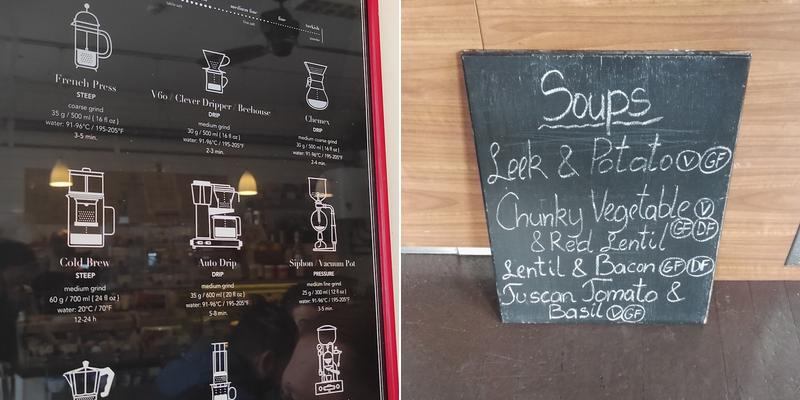 table salt
medium fine
fine salt
fine
turkish
powder
French Press
STEEP
coarse grind
35 g / 500 ml ( 16 fl oz )
water: 91-96°C / 195-205°F
3-5 min.
V60 / Clever Dripper / Beehouse
DRIP
medium grind
30 g / 500 ml ( 16 fl oz )
water: 91-96°C / 195-205°F
2-3 min.
Chemex
DRIP
medium coarse grind
35 g / 500 ml ( 16 fl oz )
water: 91-96°C / 195-205°F
2-4 min.
Cold Brew
STEEP
medium grind
60 g / 700 ml ( 24 fl oz )
water: 20°C / 70°F
12-24 h
Auto Drip
DRIP
medium grind
35 g / 600 ml ( 20 fl oz )
water: 91-96°C / 195-205°F
5-8 min.
Siphon / Vacuum Pot
PRESSURE
medium fine grind
25 g / 300 ml ( 12 fl oz )
water: 91-96°C / 195-205°F
3-5 min.
Soups
Leek & Potato V GF
Chunky Vegetable V
& Red Lentil GF DF
Lentil & Bacon GF DF
Tuscan Tomato &
Basil V GF